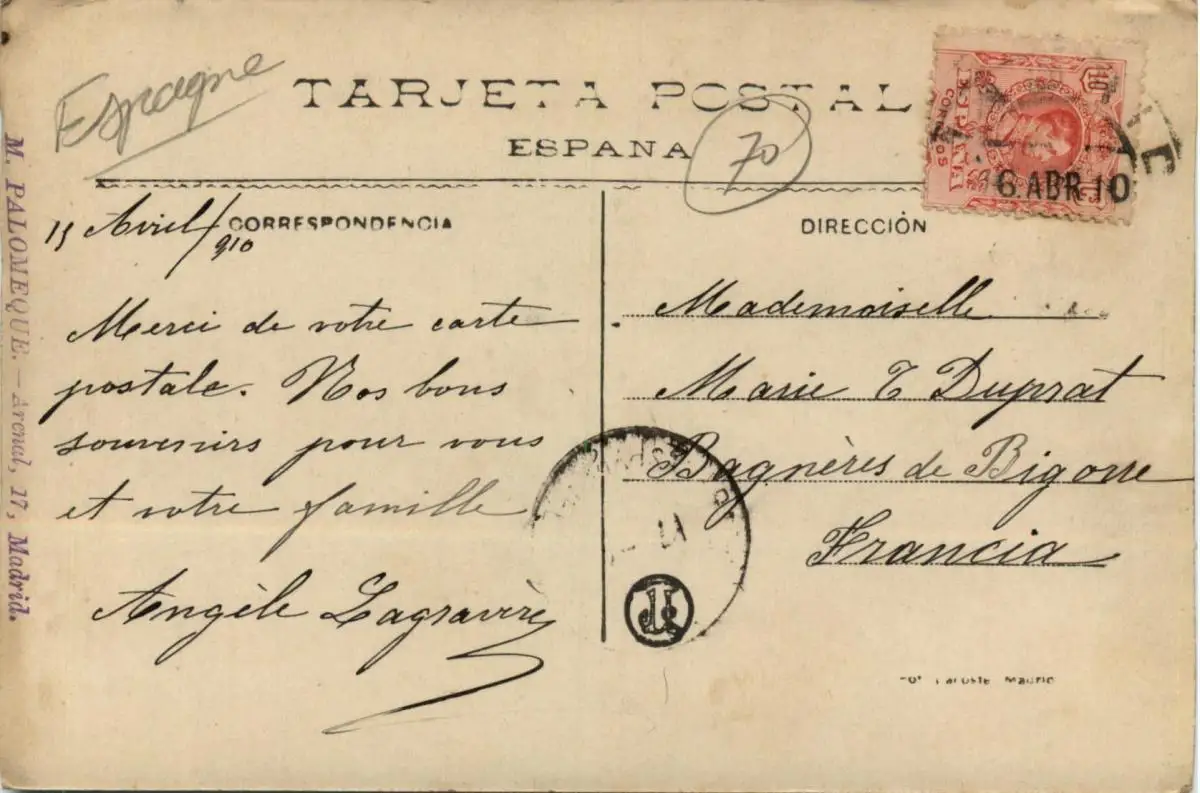 Espagne
TARJETA POSTAL
ESPAÑA
70
ESPAÑA
CORREOS
10
6. ABR 10
M. PALOMEQUE. — Arenal, 17, Madrid.
15 Avril / 910
CORRESPONDENCIA
Merci de votre carte
postale. Nos bons
souvenirs pour vous
et votre famille
Angèle Lagravère
DIRECCIÓN
Mademoiselle
Marie T Duprat
Bagnères de Bigorre
Francia
Lacoste Madrid